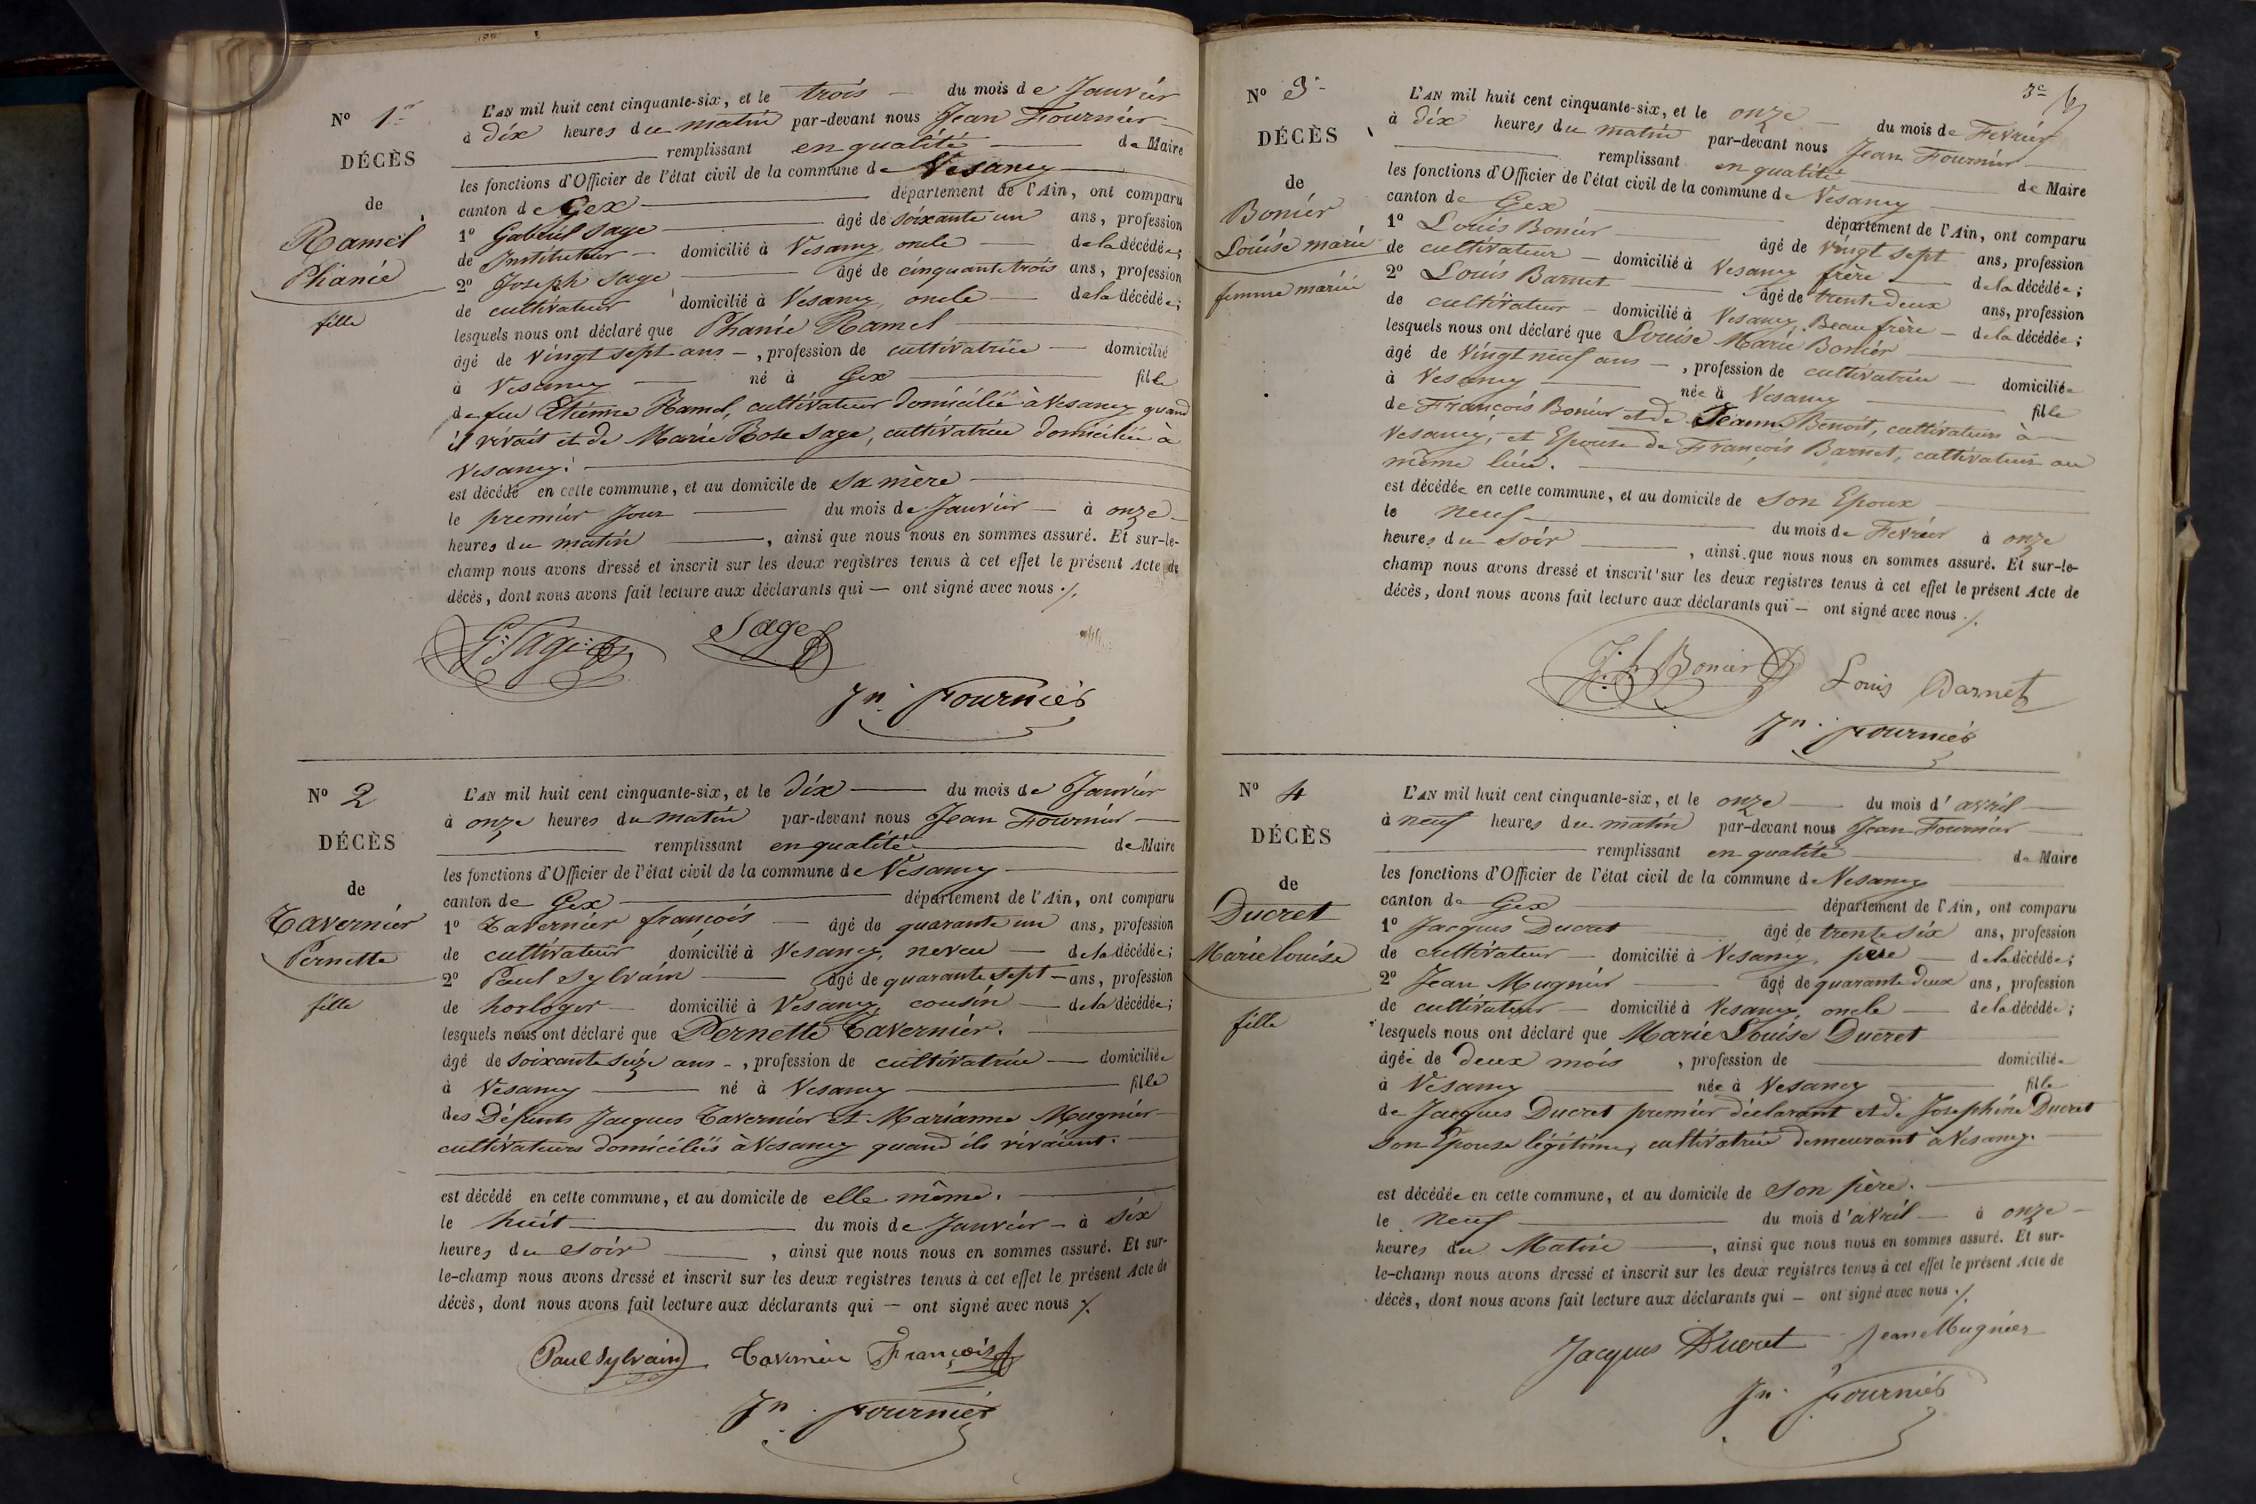 No 1er
DÉCÈS
de
Ramel
Phanie
fille
L'AN mil huit cent cinquante-six, et le trois — du mois de Janvier
à dix heures du matin par-devant nous Jean Fournier
remplissant en qualité — de Maire
les fonctions d'Officier de l'état civil de la commune de Vesancy
canton de Gex — département de l'Ain, ont comparu
1o Gabriel Sage — âgé de soixante un ans, profession
de Instituteur — domicilié à Vesancy, oncle — de la décédée;
2o Joseph Sage — âgé de cinquante trois ans, profession
de cultivateur domicilié à Vesancy, oncle — de la décédée;
lesquels nous ont déclaré que Phanie Ramel —
âgé de vingt sept ans —, profession de cultivatrice — domicilié
à Vesancy — né à Gex — fille
de feu Etienne Ramel, cultivateur domicilié à Vesancy quand
il vivait et de Marie Rose Sage, cultivatrice domiciliée à
Vesancy. —
est décédé en cette commune, et au domicile de sa mère —
le premier jour — du mois de Janvier — à onze —
heures du matin —, ainsi que nous nous en sommes assuré. Et sur-le-
champ nous avons dressé et inscrit sur les deux registres tenus à cet effet le présent Acte de
décès, dont nous avons fait lecture aux déclarants qui — ont signé avec nous ./.
G. Sage Sage
Jn. Fournier
No 2
DÉCÈS
de
Tavernier
Pernette
fille
L'AN mil huit cent cinquante-six, et le dix — du mois de Janvier
à onze heures du matin par-devant nous Jean Fournier —
remplissant en qualité — de Maire
les fonctions d'Officier de l'état civil de la commune de Vesancy —
canton de Gex — département de l'Ain, ont comparu
1o Tavernier françois — âgé de quarante un ans, profession
de cultivateur domicilié à Vesancy, neveu — de la décédée;
2o Paul Sylvain — âgé de quarante sept — ans, profession
de horloger — domicilié à Vesancy, cousin — de la décédée;
lesquels nous ont déclaré que Pernette Tavernier. —
âgé de soixante seize ans —, profession de cultivatrice — domiciliée
à Vesancy — né à Vesancy — fille
des Défunts Jacques Tavernier Et Marianne Mugnier
cultivateurs domiciliés à Vesancy quand ils vivaient. —
est décédé en cette commune, et au domicile de elle même. —
le huit — du mois de Janvier — à six
heures du soir —, ainsi que nous nous en sommes assuré. Et sur-
le-champ nous avons dressé et inscrit sur les deux registres tenus à cet effet le présent Acte de
décès, dont nous avons fait lecture aux déclarants qui — ont signé avec nous ./.
Paul Sylvain Tavernier François
Jn. Fournier
3e
No 3
DÉCÈS
de
Bonier
Louise marie
femme mariée
L'AN mil huit cent cinquante-six, et le onze — du mois de Fevrier
à dix heures du matin par-devant nous Jean Fournier
remplissant en qualité — de Maire
les fonctions d'Officier de l'état civil de la commune de Vesancy —
canton de Gex — département de l'Ain, ont comparu
1o Louis Bonier — âgé de vingt sept ans, profession
de cultivateur — domicilié à Vesancy frère — de la décédée;
2o Louis Barnet — âgé de trente deux ans, profession
de cultivateur — domicilié à Vesancy, Beau frère — de la décédée;
lesquels nous ont déclaré que Louise Marie Bonier —
âgé de vingt neuf ans —, profession de cultivatrice — domiciliée
à Vesancy — née à Vesancy — fille
de François Bonier et de Jeanne Benoit, cultivateurs à
Vesancy, et Epouse de François Barnet, cultivateur au
même lieu. —
est décédée en cette commune, et au domicile de son Epoux —
le neuf — du mois de Fevrier à onze
heures du soir —, ainsi que nous nous en sommes assuré. Et sur-le-
champ nous avons dressé et inscrit sur les deux registres tenus à cet effet le présent Acte de
décès, dont nous avons fait lecture aux déclarants qui — ont signé avec nous ./.
Bonier Louis Barnet
Jn. Fournier
No 4
DÉCÈS
de
Ducret
Marie louise
fille
L'AN mil huit cent cinquante-six, et le onze — du mois d'avril —
à neuf heures du matin par-devant nous Jean Fournier —
remplissant en qualité — de Maire
les fonctions d'Officier de l'état civil de la commune de Vesancy —
canton de Gex — département de l'Ain, ont comparu
1o Jacques Ducret — âgé de trente six ans, profession
de cultivateur — domicilié à Vesancy, père — de la décédée;
2o Jean Mugnier — âgé de quarante deux ans, profession
de cultivateur — domicilié à Vesancy, oncle — de la décédée;
lesquels nous ont déclaré que Marie Louise Ducret
âgée de deux mois, profession de — domiciliée
à Vesancy — née à Vesancy — fille
de Jacques Ducret premier déclarant et de Josephine Ducret
son Epouse légitime, cultivatrice demeurant à Vesancy. —
est décédée en cette commune, et au domicile de son père. —
le neuf — du mois d'avril — à onze —
heures du Matin —, ainsi que nous nous en sommes assuré. Et sur-
le-champ nous avons dressé et inscrit sur les deux registres tenus à cet effet le présent Acte de
décès, dont nous avons fait lecture aux déclarants qui — ont signé avec nous ./.
Jacques Ducret Jean Mugnier
Jn. Fournier